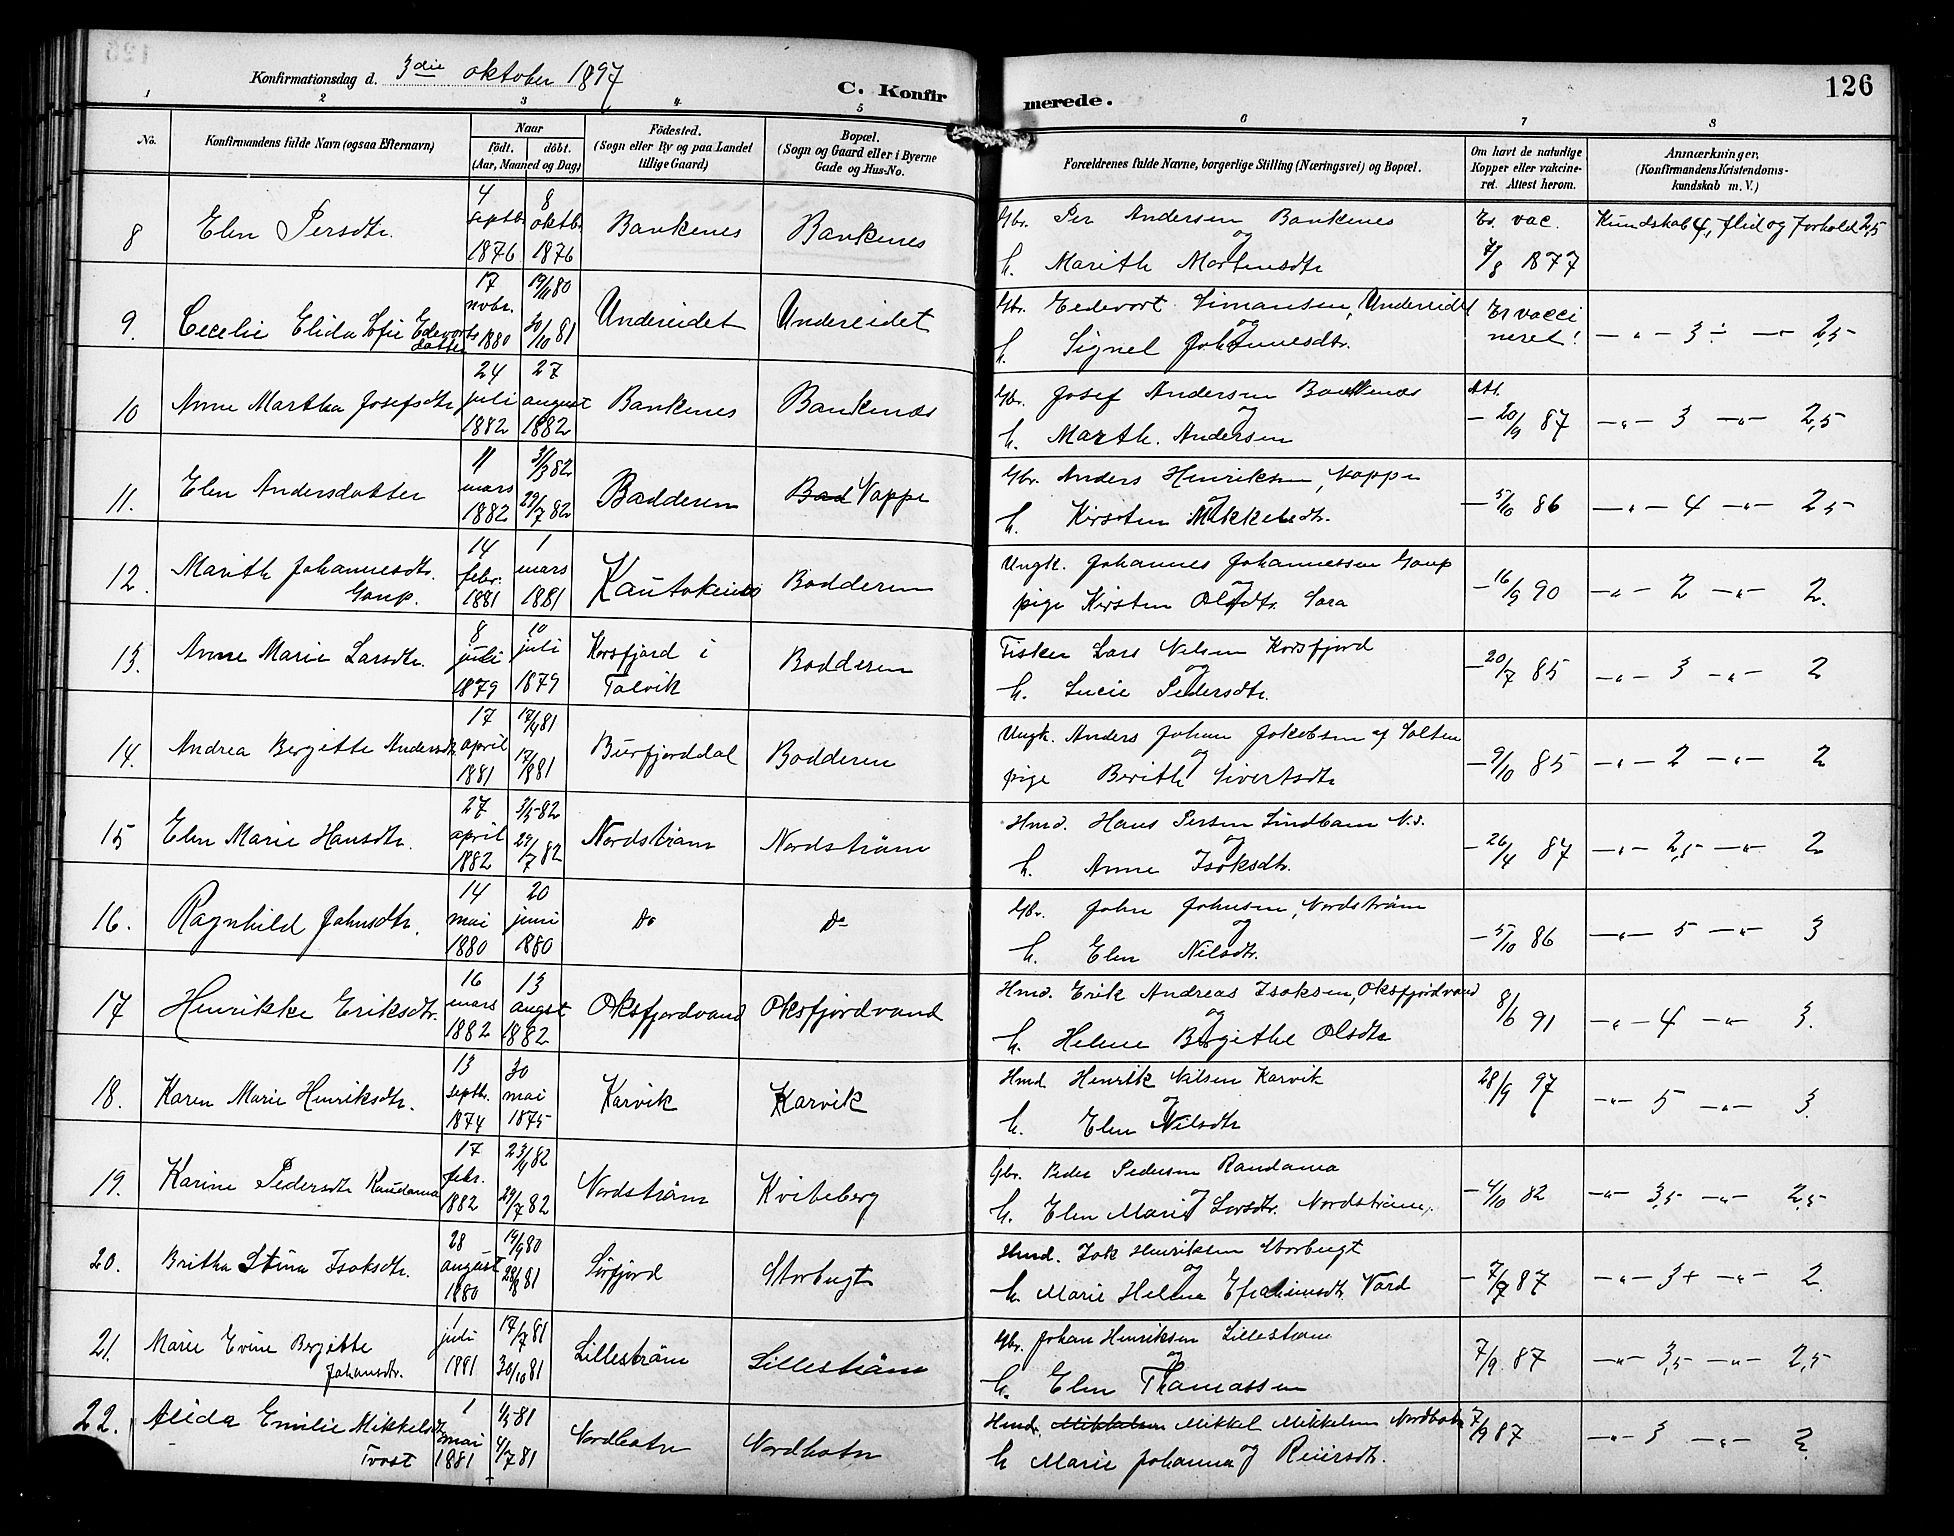 126
Konfirmationsdag d. 3die oktober 1897
C. Konfirmerede.
1 2 3 4 5 6 7 8
No.
Konfirmandens fulde Navn (ogsaa Efternavn)
Naar
födt. döbt.
(Aar, Maaned og Dag)
Födested.
(Sogn eller By og paa Landet
tillige Gaard)
Bopæl.
(Sogn og Gaard eller i Byerne
Gade og Hus-No.
Forældrenes fulde Navne, borgerlige Stilling (Næringsvei) og Bopæl.
Om havt de naturlige
Kopper eller vakcine-
ret. Attest herom.
Anmærkninger.
(Konfirmandens Kristendoms-
kundskab m. V.)
8 Elen Persdtr. 4 septbr. 1876 8 oktbr. 1876 Bankenes Bankenes
Gbr. Per Andersen Bankenes
og
h. Marith Mortensdtr
Er vac. 7/8 1877
Kundskab 4, flid og forhold 2,5
9. Cecelie Elida Sofie Edevorts
datter
17 novbr. 1880 19/11 80 30/10 81 Undereidet Undereidet
Gbr. Eedevort Simonsen, Undereidet
og
h. Signel Johannesdtr.
Er vacci
neret!
— " — 3 ÷ — " 2,5
10 Anne Martha Josefsdtr 24 juli 1882 27 august 1882 Bankenes Bankenes
Gbr. Josef Andersen Bankenes
og
h. Marth. Andersen
Att.
— 20/9 87
— " — 3 — " — 2,5
11. Elen Andersdatter 11 mars 1882 31/3 82 29/7 82 Badderen Bad Vappe
Gbr. Anders Henriksen, Vappe
og
h. Kirsten Mikkelsdtr.
— 5/10 86
— " — 4 — " — 2,5
12. Marith Johannesdtr.
Gaup.
14 febr. 1881 1 mars 1881 Kautokeino Badderen
Ungk. Johannes Johannessen Gaup
og
pige Kirsten Olsdtr. Sara
— 16/9 90
— " — 2 — " — 2.
13. Anne Marie Larsdtr. 8 juli 1879 10 juli 1879 Korsfjord i
Talvik
Badderen
Fisker Lars Nilsen Korsfjord
og
h. Lucie Pedersdtr.
— 20/7 85
— " — 3 — " — 2
14. Andrea Bergitte Andersdtr. 17 april 1881 17/4 81 Burfjorddal Badderen
Ungk. Anders Johan Jakobsen af Salten
og
pige Berith Sivertsdtr
— 9/10 85
— " — 2 — " — 2
15 Elen Marie Hansdtr. 27 april 1882 3/5 82 29/7 82 Nordsträm Nordsträm
Hmd. Hans Persen Lindbam N.s.
og
h. Anne Isaksdtr.
— 26/4 87
— " — 2,5 — " — 2
16. Ragnhild Johnsdtr. 14 mai 1880 20 juni 1880 Do Do
Gbr. John Johnsen, Nordsträm
og
h. Elen Nilsdtr.
— 5/10 86
— " — 5 — " — 3
17 Henrikke Eriksdtr. 16 mars 1882 13 augst 1882 Oksfjordvand Oksfjordvand
Hmd. Erik Andreas Isaksen, Oksfjordvand
og
h. Helene Bergithe Olsdtr
8/6 91
— " — 4 — " — 3.
18. Karen Marie Henriksdtr. 13 septbr. 1874 30 mai 1875 Karvik Karvik
Hmd. Henrik Nilsen Karvik
og
h. Elen Nilsdtr
28/9 97
— " — 5 — " — 3.
19. Karine Pedersdtr Raudama 17 febr. 1882 23/4 82 29/7 82 Nordsträm Kviteberg
Gbr. Peder Pedersen Raudama
og
h. Elen Marie Larsdtr. Nordsträm.
— 4/10 82
— " — 3,5 — " — 2,5
20. Britha Stina Isaksdtr. 28 august 1880 19/9 80 28/8 81 Sörfjord Storbugt
Hmd. Isak Henriksen Storbugt
og
h. Marie Helena Efraimsdtr. Vard
— 7/9 87
— " — 3+ — " — 2
21. Marie Evine Bergitte
Johansdtr.
1 juli 1881 17/7 81 30/10 81 Lillesträm Lillesträm
Gbr. Johan Henriksen Lillesträm
og
h. Elen Thomassen
7/9 87
— " — 3,5 — " — 2,5
22. Alida Emilie Mikkelsdtr
Trost
1 mai 1881 4/7 81 Nordbotn Nordbotn
Hmd. Mikkelsen Mikkel Mikkelsen Nordbotn
h Marie Johanna og Reiersdtr.
7/9 87
— " — 3 — " — 2